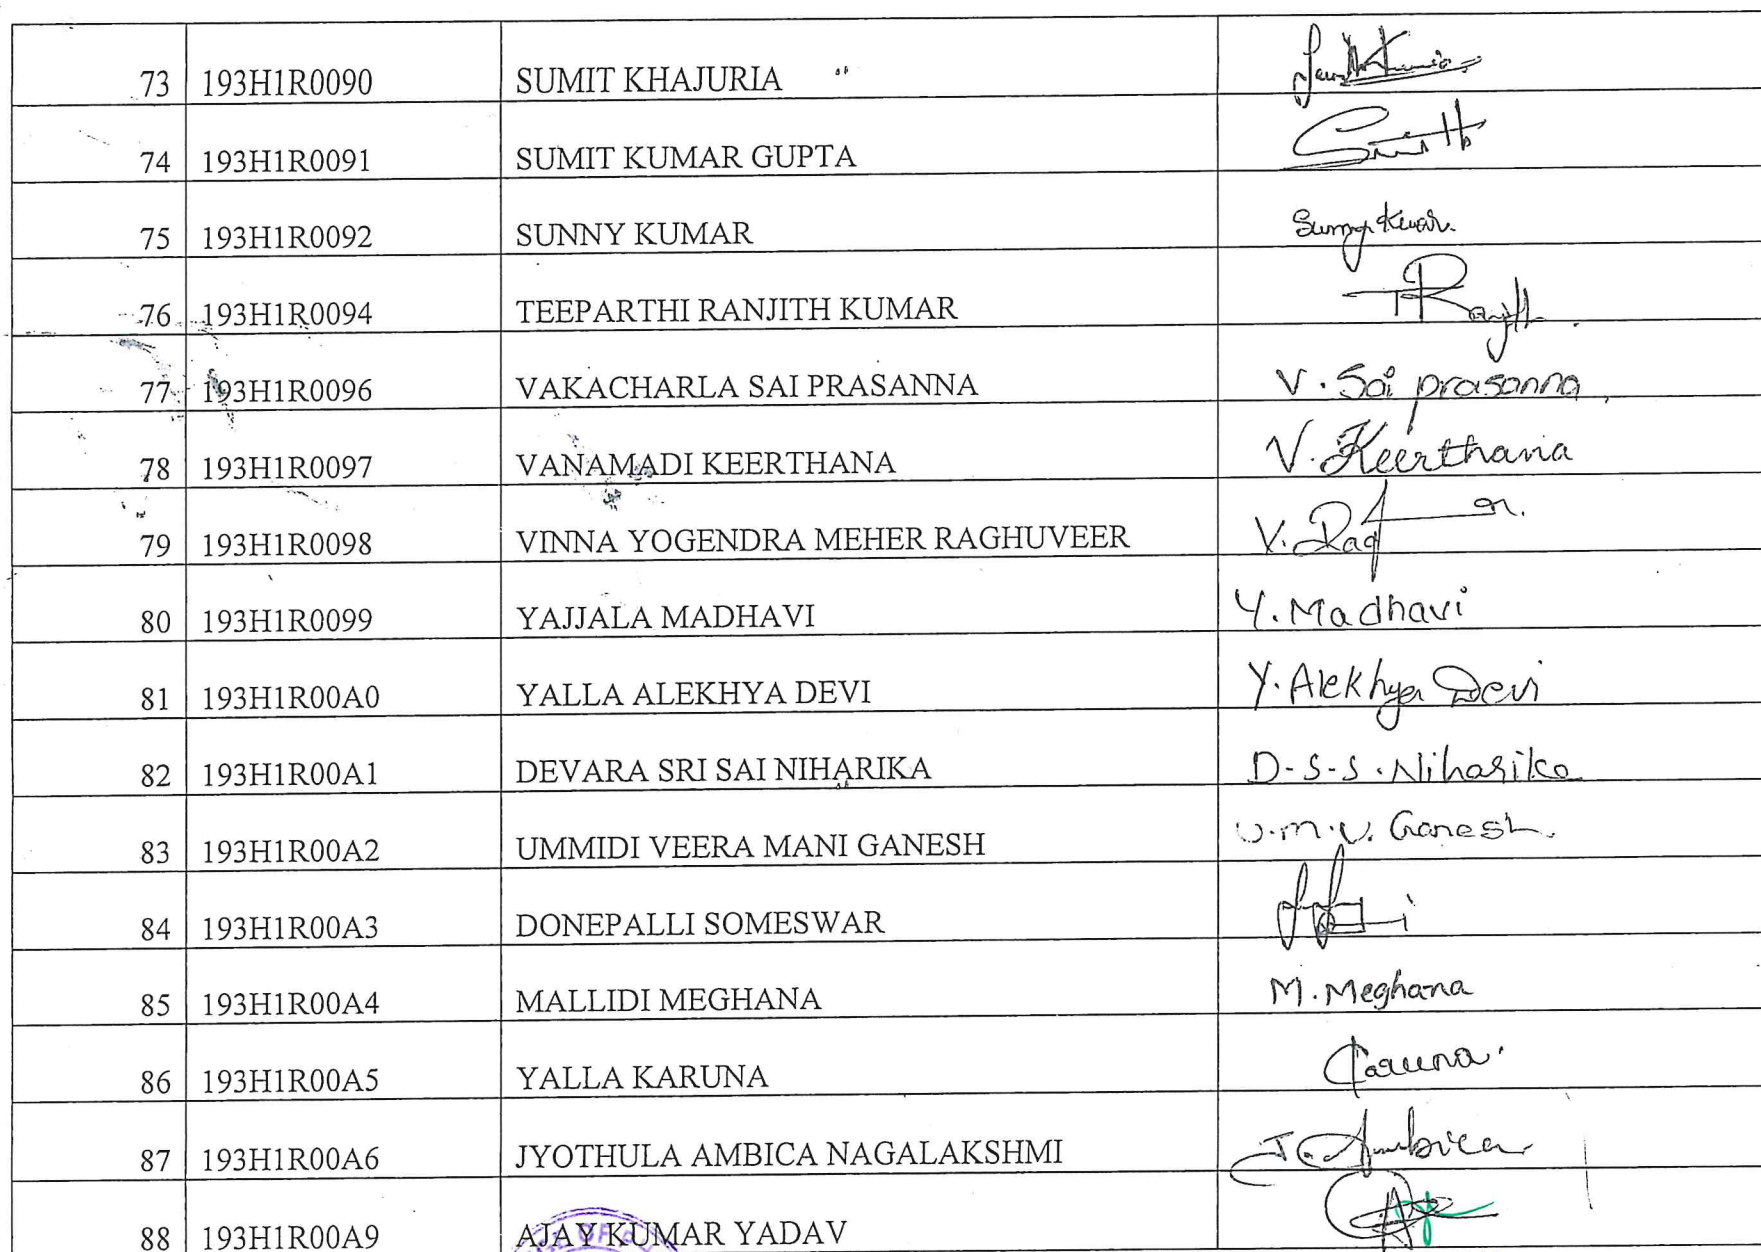 73 193H1R0090 SUMIT KHAJURIA
74 193H1R0091 SUMIT KUMAR GUPTA Sumit
75 193H1R0092 SUNNY KUMAR Sunny Kumar.
76 193H1R0094 TEEPARTHI RANJITH KUMAR T Ranjith.
77 193H1R0096 VAKACHARLA SAI PRASANNA V. Sai prasanna,
78 193H1R0097 VANAMADI KEERTHANA V. Keerthana
79 193H1R0098 VINNA YOGENDRA MEHER RAGHUVEER V. Rag
80 193H1R0099 YAJJALA MADHAVI Y. Madhavi
81 193H1R00A0 YALLA ALEKHYA DEVI Y. Alekhya Devi
82 193H1R00A1 DEVARA SRI SAI NIHARIKA D-S-S. Niharika
83 193H1R00A2 UMMIDI VEERA MANI GANESH U.m.v. Ganesh.
84 193H1R00A3 DONEPALLI SOMESWAR
85 193H1R00A4 MALLIDI MEGHANA M. Meghana
86 193H1R00A5 YALLA KARUNA Karuna.
87 193H1R00A6 JYOTHULA AMBICA NAGALAKSHMI J. Ambica
88 193H1R00A9 AJAY KUMAR YADAV
OF